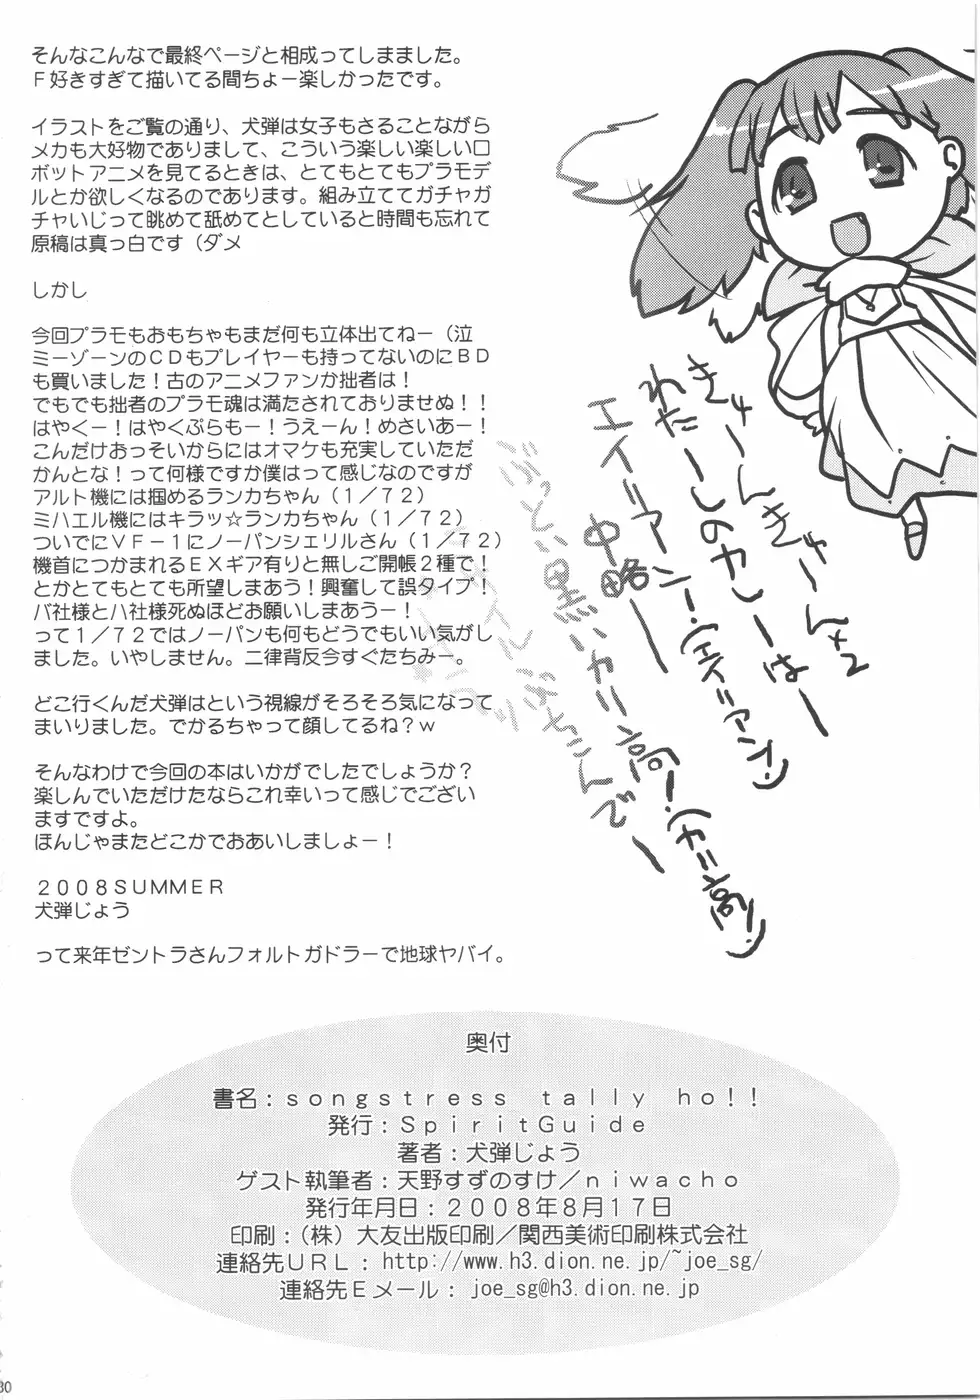 そんなこんなで最終ページと相成ってしまました。
Ｆ好きすぎて描いてる間ちょー楽しかったです。
イラストをご覧の通り、犬弾は女子もさることながら
メカも大好物でありまして、こういう楽しい楽しいロ
ボットアニメを見てるときは、とてもとてもプラモデ
ルとか欲しくなるのであります。組み立ててガチャガ
チャいじって眺めて舐めてとしていると時間も忘れて
原稿は真っ白です（ダメ
しかし
今回プラモもおもちゃもまだ何も立体出てねー（泣
ミーゾーンのＣＤもプレイヤーも持ってないのにＢＤ
も買いました！古のアニメファンか拙者は！
でもでも拙者のプラモ魂は満たされておりませぬ！！
はやくー！はやくぷらもー！うえーん！めさいあー！
こんだけおっそいからにはオマケも充実していただ
かんとな！って何様ですか僕はって感じなのですが
アルト機には掴めるランカちゃん（１／７２）
ミハエル機にはキラッ☆ランカちゃん（１／７２）
ついでにＶＦ－１にノーパンシェリルさん（１／７２）
機首につかまれるＥＸギア有りと無しご開帳２種で！
とかとてもとても所望しまあう！興奮して誤タイプ！
バ社様とハ社様死ぬほどお願いしまあうー！
って１／７２ではノーパンも何もどうでもいい気がし
ました。いやしません。二律背反今すぐたちみー。
どこ行くんだ犬弾はという視線がそろそろ気になって
まいりました。でかるちゃって顔してるね？ｗ
そんなわけで今回の本はいかがでしたでしょうか？
楽しんでいただけたならこれ幸いって感じでござい
ますですよ。
ほんじゃまたどこかでおあいしましょー！
２００８ＳＵＭＭＥＲ
犬弾じょう
って来年ゼントラさんフォルトガドラーで地球ヤバイ。
きゅーんきゅーん×２
わたーしのカレーはー
エイリアン！（エイリアン）
中略ー
ぶっとい黒いカリ高！（カリ高）
奥付
書名：ｓｏｎｇｓｔｒｅｓｓ　ｔａｌｌｙ　ｈｏ！！
発行：ＳｐｉｒｉｔＧｕｉｄｅ
著者：犬弾じょう
ゲスト執筆者：天野すずのすけ／ｎｉｗａｃｈｏ
発行年月日：２００８年８月１７日
印刷：（株）大友出版印刷／関西美術印刷株式会社
連絡先ＵＲＬ：http://www.h3.dion.ne.jp/~joe_sg/
連絡先Ｅメール：joe_sg@h3.dion.ne.jp
30